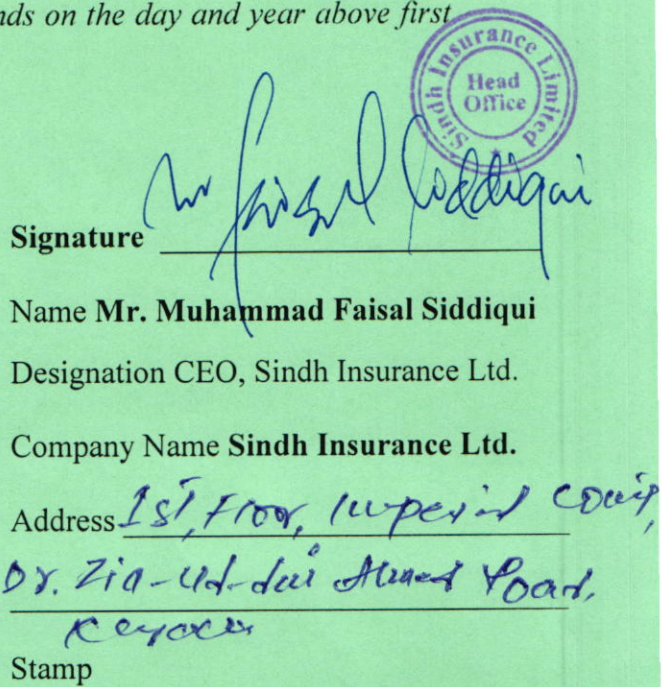 nds on the day and year above first
Sindh Insurance Limited
Head
Office
Signature
Name Mr. Muhammad Faisal Siddiqui
Designation CEO, Sindh Insurance Ltd.
Company Name Sindh Insurance Ltd.
Address 1st, Floor, Imperial Court,
Dr. Zia-ud-din Ahmed Road,
Stamp